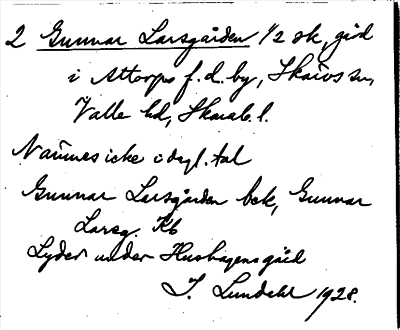 2 Gunnar Larsgården 1/2 sk, gård
i Attorps f.d. by, Skärvs sn,
Valle hd, Skarab. l.
Nämnes icke i dagl. tal
Gunnar Larsgården bek, Gunnar
Larsg. Kb
Lyder under Hushagensgård
I. Lundahl 1928.